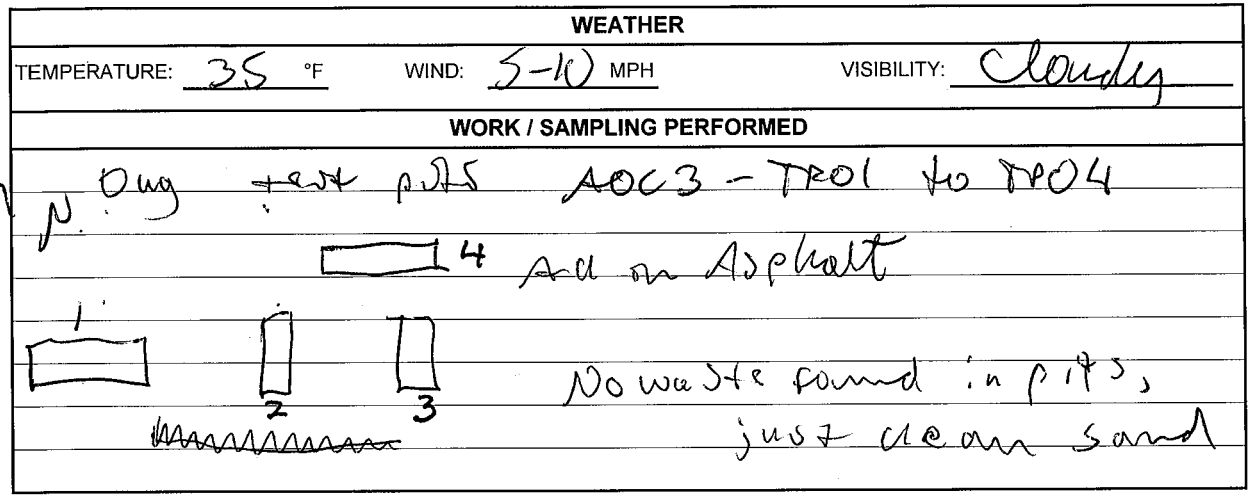 WEATHER
TEMPERATURE: 35 °F WIND: 5-10 MPH VISIBILITY: Cloudy
WORK / SAMPLING PERFORMED
N. Dug test pits AOC3 - TP01 to TP04
4 All on Asphalt
1
No waste found in pits,
2 3
just clean sand